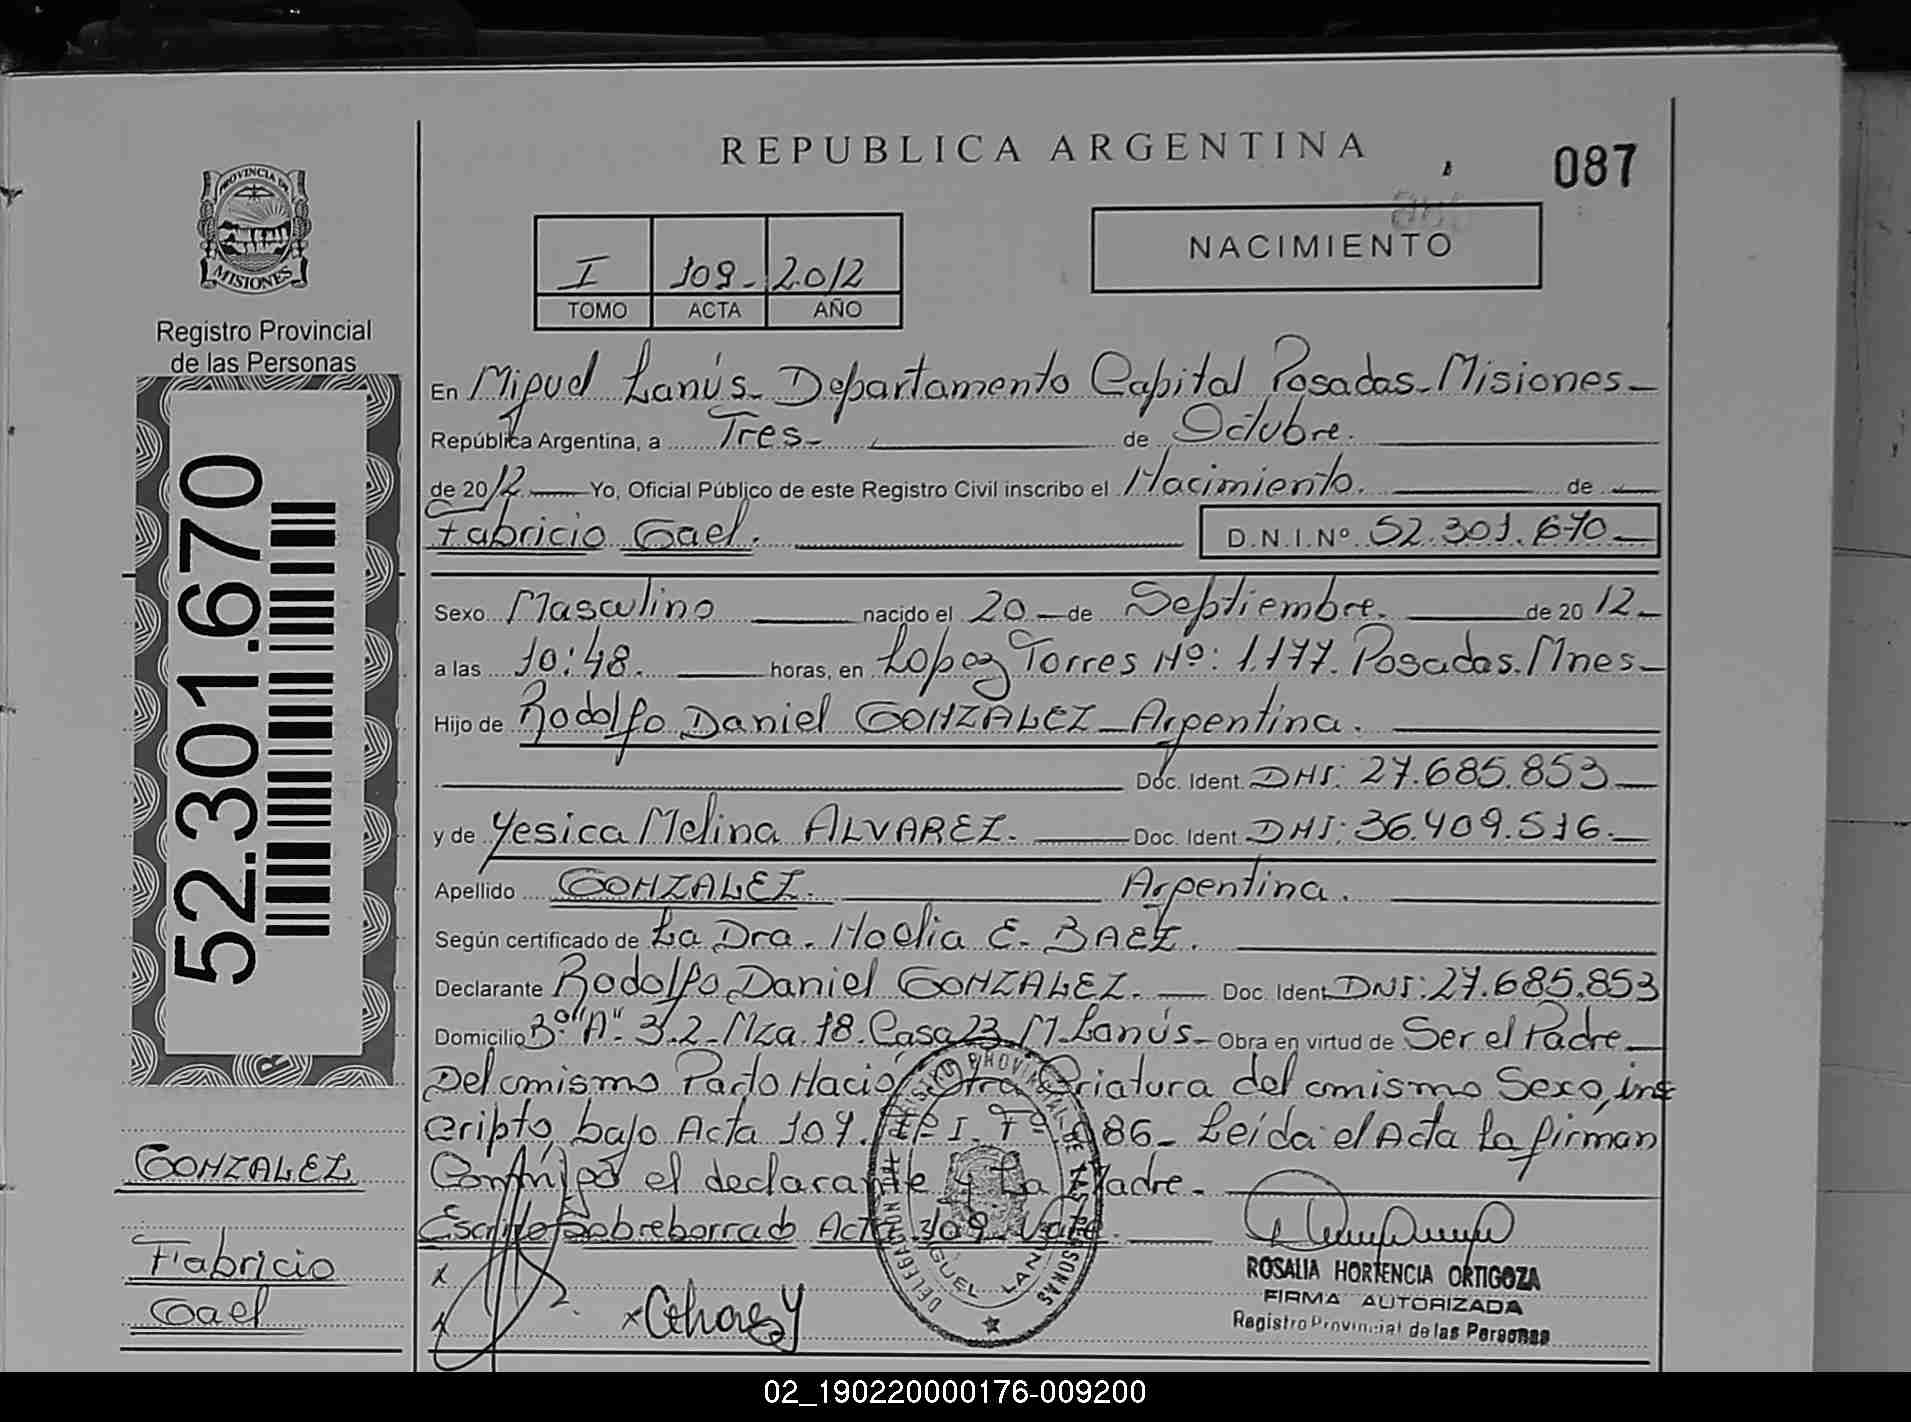 REPUBLICA ARGENTINA
087
PROVINCIA DE
MISIONES
Registro Provincial
de las Personas
I 109- 2012
TOMO ACTA AÑO
NACIMIENTO
52.301.670
En Miguel Lanús- Departamento Capital Posadas-Misiones-
República Argentina, a Tres- de Octubre.
de 2012 Yo, Oficial Público de este Registro Civil inscribo el Nacimiento. de
Fabricio Gael. D.N.I.Nº 52.301.670
Sexo Masculino nacido el 20 de Septiembre. de 2012-
a las 10:48. horas, en Lopez Torres Nº: 1.177. Posadas. Mnes-
Hijo de Rodolfo Daniel GONZALEZ-Argentina.
Doc. Ident. DNI: 27.685.853
y de Yesica Melina ALVAREZ. Doc. Ident. DNI: 36.409.516.
Apellido GONZALEZ. Argentina.
Según certificado de La Dra. Noelia E. BAEZ.
Declarante Rodolfo Daniel GONZALEZ. Doc. Ident. DNI: 27.685.853
Domicilio 3º "A". 3.2-Mza.18. Casa 23 M.Lanús- Obra en virtud de Ser el Padre
Del mismo Parto Nació Otra Criatura del mismo Sexo, ins
cripto, bajo Acta 107. Tº I. Fº 086- Leída el Acta La firman
Conmigo el declarante y La Madre.
Escrito Sobreborrado Acta 109. Vale.
GONZALEZ
Fabricio
Gael
DELEGACION DEL REGISTRO PROVINCIAL DE LAS PERSONAS
MIGUEL LANUS
ROSALIA HORTENCIA ORTIGOZA
FIRMA AUTORIZADA
Registro Provincial de las Personas
02_190220000176-009200